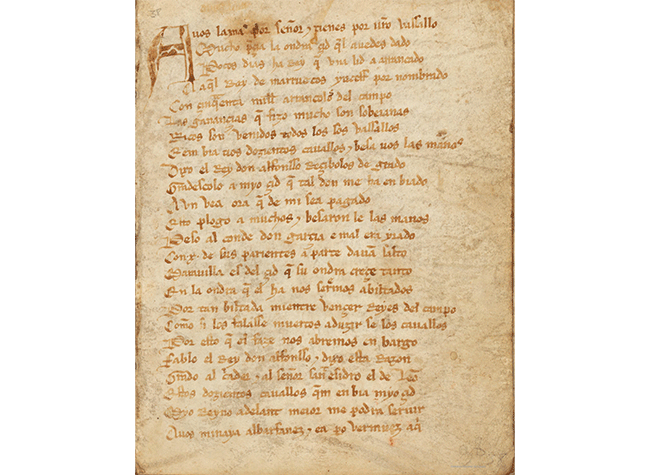 Avos lama por señor, ⁊ tienes por ur̃o vassallo
Mucho preçia la ondra çid q̃l auedes dado
Pocos dias ha Rey q̃ vna lid a arrancado
A aq̃l Rey de marruecos yuceff por nombrado
Con çinquaenta mill arrancolos del campo
Las ganançias q̃ fizo mucho son sobeianas
Ricos son venidos todos los sos vassallos
E embia uos dozientos cauallos, ⁊ besa uos las manos
Dixo el Rey don alfonsso Reçibolos de grado
Gradescolo a myo çid q̃ tal don me ha enbiado
Avn vea ora q̃ de mi sea pagado
Esto plogo a muchos, ⁊ besaron le las manos
Peso al conde don garçia e mal era yrado
Con .x. de sus parientes a parte dauan salto
Marauilla es del çid q̃ su ondra creçe tanto
En la ondra q̃ el ha nos seremos abiltados
Por tan biltada mientre vençer Reyes del campo
Commo si los falasse muertos aduzir se los cauallos
Por esto q̃ el faze nos abremos enbargo
Fablo el Rey don alfonsso, ⁊ dixo esta Razon
Grado al c̃ador, ⁊ al señor sant esidro el de leõ
Estos dozientos cauallos q̃m enbia myo çid
Myo Reyno adelant meior me podra seruir
Auos minaya albarfanez, ⁊ a pero vermuez aq̃